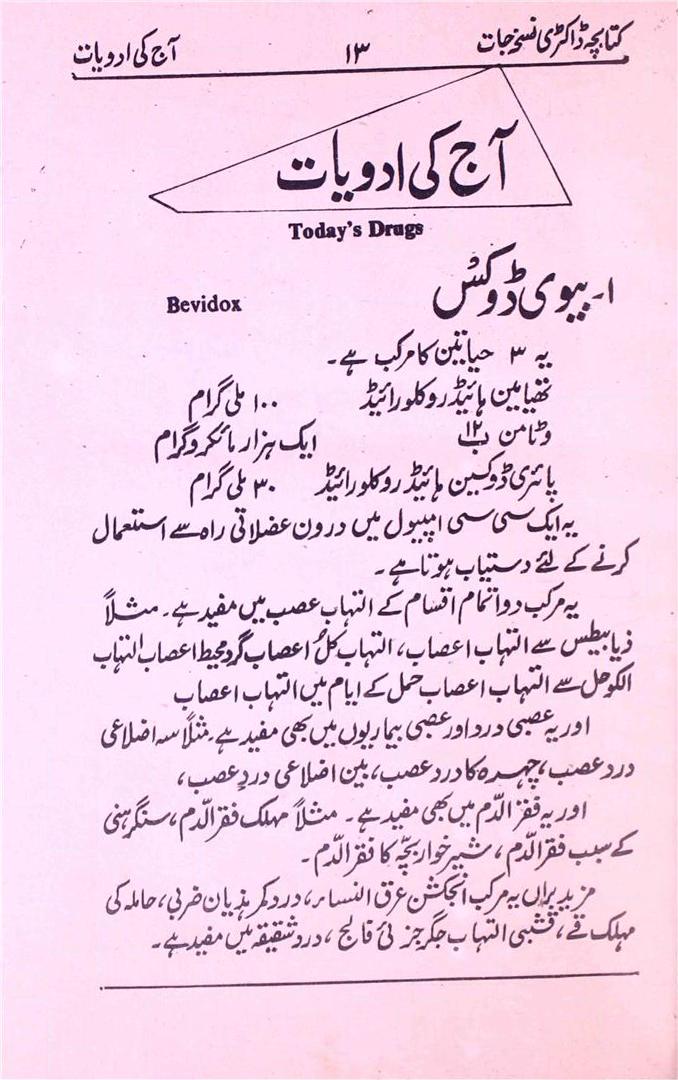 کتابچہ ڈاکٹری نسخہ جات ۱۳ آج کی ادویات
آج کی ادویات
Today's Drugs
۱۔ بیوی ڈوکس Bevidox
یہ ۳ حیاتین کا مرکب ہے۔
تھیامین ہائیڈروکلورائیڈ ۱۰۰ ملی گرام
وٹامن ب ۱۲ ایک ہزار مائکروگرام
پائری ڈوکسین ہائیڈروکلورائیڈ ۳۰ ملی گرام
یہ ایک سی سی امپیول میں درون عضلاتی راہ سے استعمال
کرنے کے لئے دستیاب ہوتا ہے۔
یہ مرکب دوا تمام اقسام کے التہاب عصب میں مفید ہے۔ مثلاً
ذیابیطس سے التہاب اعصاب، التہاب کل اعصاب گرد محیط اعصاب التہاب
الکوحل سے التہاب اعصاب حمل کے ایام میں التہاب اعصاب
اور یہ عصبی درد اور عصبی بیماریوں میں بھی مفید ہے۔ مثلاً سہ اضلاعی
درد عصب، چہرہ کا درد عصب، بین اضلاعی دردِ عصب،
اور یہ فقر الدّم میں بھی مفید ہے۔ مثلاً مہلک فقر الدّم، سنگرہنی
کے سبب فقر الدّم، شیر خوار بچّہ کا فقر الدّم۔
مزید براں یہ مرکب انجکشن عرق النساء، درد کمر ہذیان ضربی، حاملہ کی
مہلک قے، قشبی التہاب جگر جزئی فالج، درد شقیقہ میں مفید ہے۔